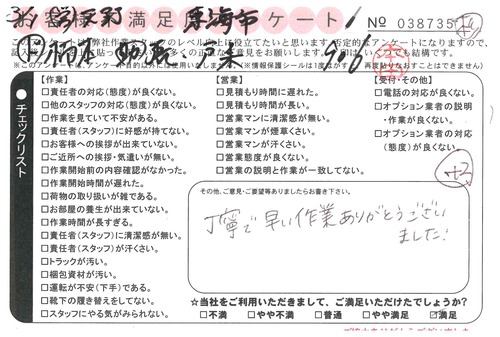 お客様満足アンケート
東海市
No 038735
チェックリスト
【作業】
□責任者の対応(態度)が良くない。
□他のスタッフの対応(態度)が良くない。
□作業を見ていて不安がある。
□責任者(スタッフ)に好感が持てない。
□お客様への挨拶が出来ていない。
□ご近所への挨拶・気遣いが無い。
□作業開始前の内容確認がなかった。
□作業開始時間が遅れた。
□荷物の取り扱いが雑である。
□お部屋の養生が出来ていない。
□作業時間が長すぎる。
□責任者(スタッフ)に清潔感が無い。
□責任者(スタッフ)が汗くさい。
□トラックが汚い。
□梱包資材が汚い。
□運転が不安(下手)である。
□靴下の履き替えをしてない。
□スタッフにやる気がみられない。
【営業】
□見積もり時間に遅れた。
□見積もり時間が長い。
□営業マンに清潔感が無い。
□営業マンが煙草くさい。
□営業マンが汗くさい。
□営業態度が良くない。
□営業の説明と作業が一致してない。
【受付・その他】
□電話の対応が良くない。
□オプション業者の説明
・作業が良くない。
□オプション業者の対応
(態度)が良くない。
その他、ご意見・ご要望等ありましたらお書き下さい。
丁寧で早い作業ありがとうござい
ました!
☆当社をご利用いただきまして、ご満足いただけたでしょうか?
□不満 □やや不満 □普通 □やや満足 ☑満足